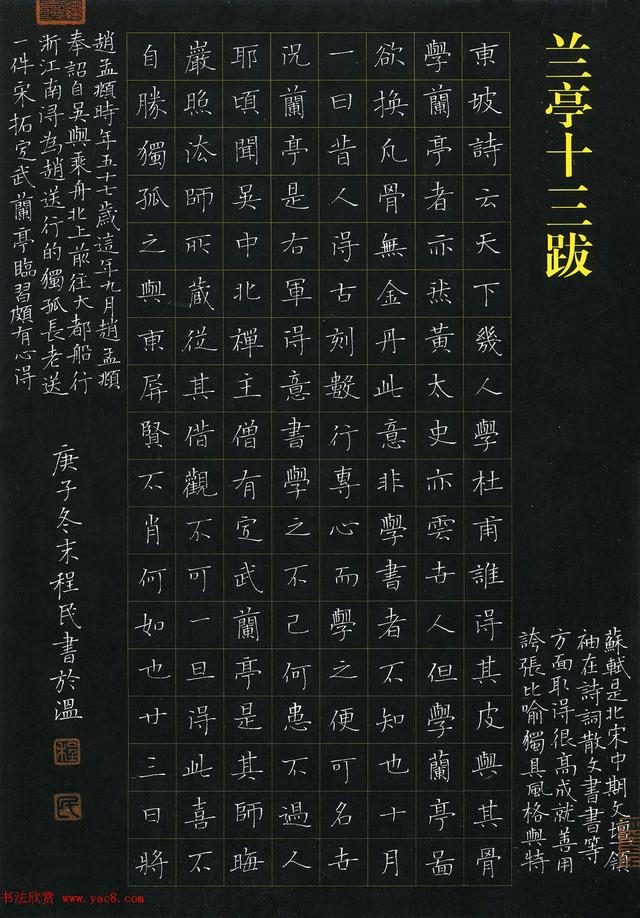 兰亭十三跋
蘇軾是北宋中期文壇領
袖在詩詞散文書書等
方面取得很高成就善用
誇張比喻獨具風格與特
東坡詩云天下幾人學杜甫誰得其皮與其骨
學蘭亭者亦然黃太史亦雲世人但學蘭亭面
欲換凡骨無金丹此意非學書者不知也十月
一日昔人得古刻數行專心而學之便可名世
況蘭亭是右軍得意書學之不已何患不過人
耶頃聞吳中北禪主僧有定武蘭亭是其師晦
嚴照法師所蔵從其借觀不可一旦得此喜不
自勝獨孤之與東屏賢不肖何如也廿三日將
趙孟頫時年五十七歲這年九月趙孟頫
奉詔自吳興乘舟北上前往大都船行
浙江南潯為趙送行的獨孤長老送
一件宋拓定武蘭亭臨習頗有心得
庚子冬末程民書於溫
程
民
书法欣赏 www.yac8.com